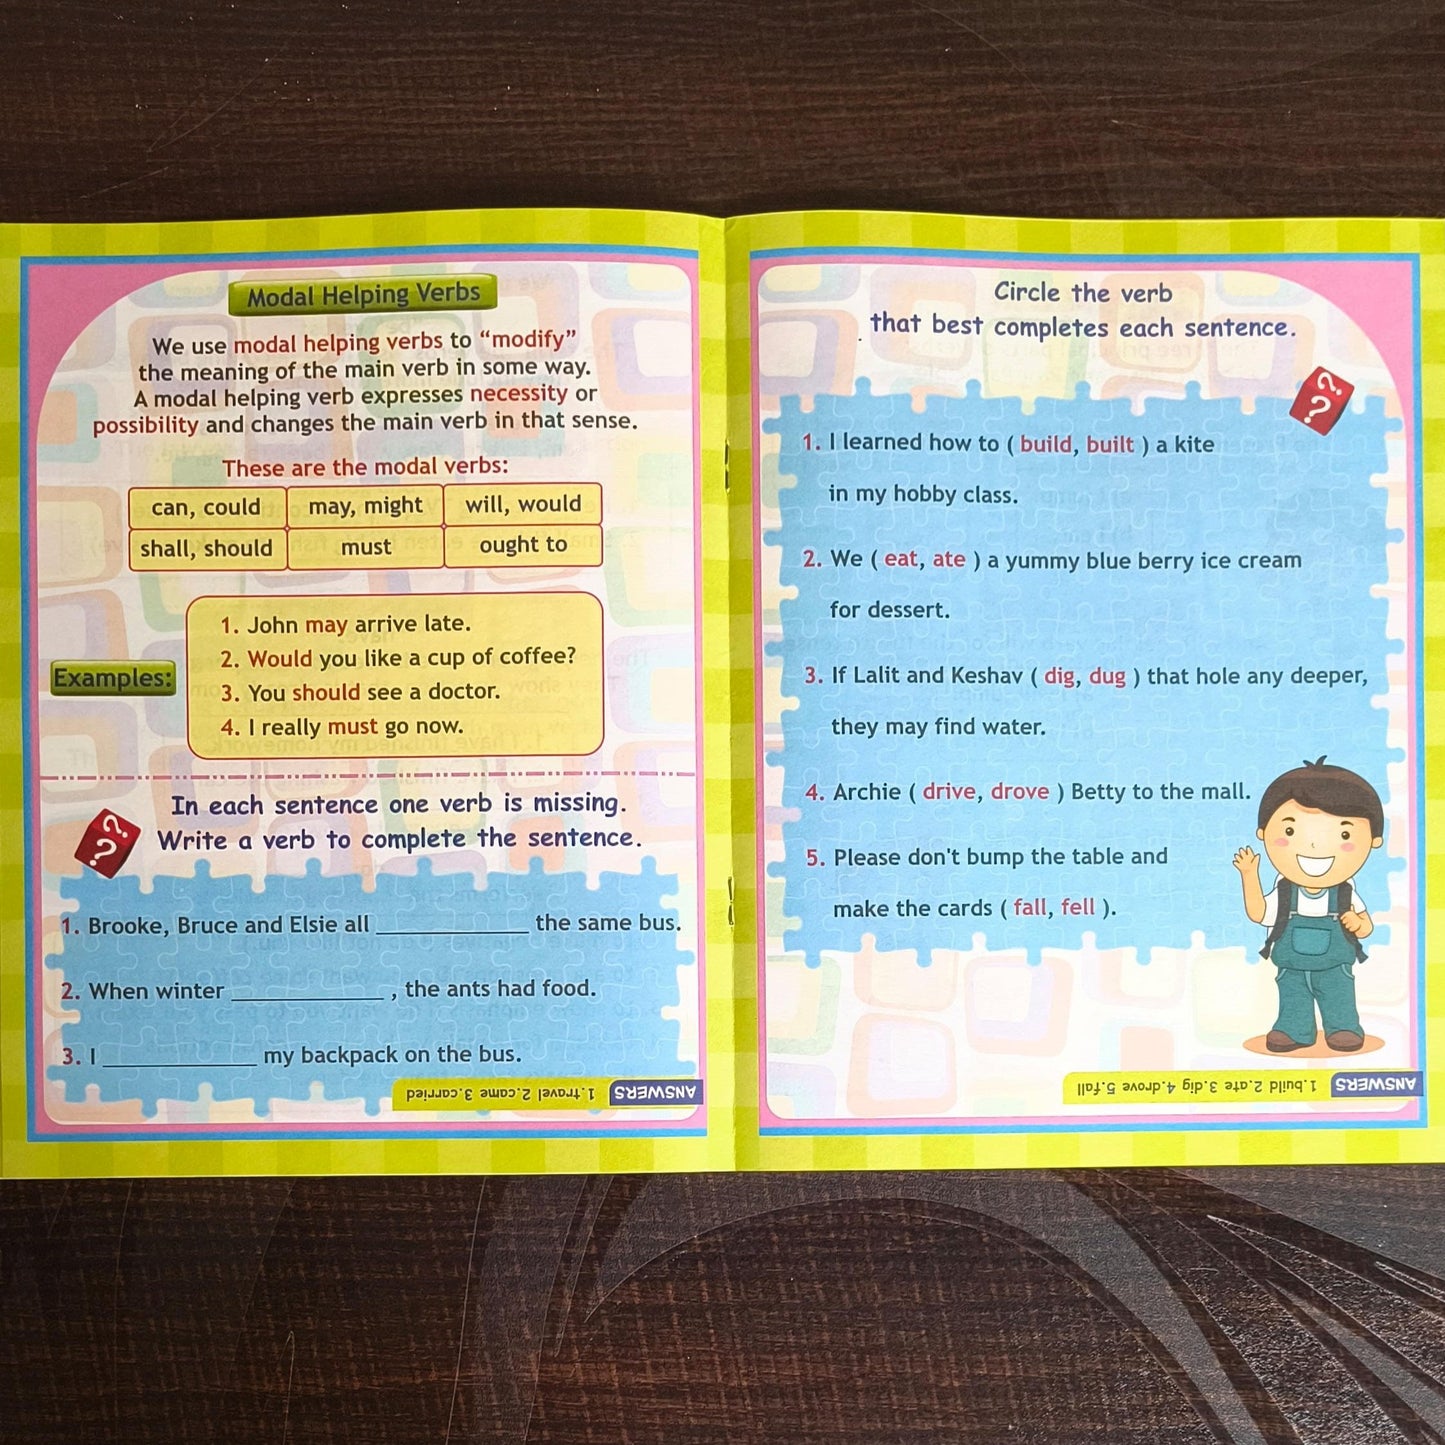 Modal Helping Verbs
We use modal helping verbs to “modify”
the meaning of the main verb in some way.
A modal helping verb expresses necessity or
possibility and changes the main verb in that sense.
These are the modal verbs:
can, could may, might will, would
shall, should must ought to
Examples:
1. John may arrive late.
2. Would you like a cup of coffee?
3. You should see a doctor.
4. I really must go now.
In each sentence one verb is missing.
Write a verb to complete the sentence.
??
1. Brooke, Bruce and Elsie all ____________ the same bus.
2. When winter ____________ , the ants had food.
3. I ____________ my backpack on the bus.
ANSWERS 1.travel 2.came 3.carried
Circle the verb
that best completes each sentence.
??
1. I learned how to ( build, built ) a kite
in my hobby class.
2. We ( eat, ate ) a yummy blue berry ice cream
for dessert.
3. If Lalit and Keshav ( dig, dug ) that hole any deeper,
they may find water.
4. Archie ( drive, drove ) Betty to the mall.
5. Please don't bump the table and
make the cards ( fall, fell ).
ANSWERS 1.build 2.ate 3.dig 4.drove 5.fall